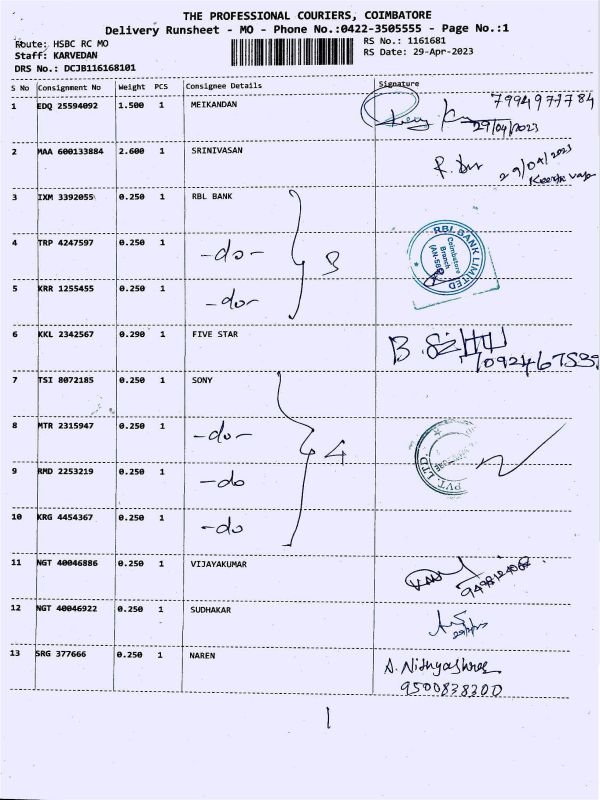 THE PROFESSIONAL COURIERS, COIMBATORE
Delivery Runsheet - MO - Phone No.:0422-3505555 - Page No.:1
Route: HSBC RC MO
RS No.: 1161681
Staff: KARVEDAN
RS Date: 29-Apr-2023
DRS No.: DCJB116168101
S No Consignment No Weight PCS Consignee Details Signature
1 EDQ 25594092 1.500 1 MEIKANDAN 7994977784
29/04/2023
2 MAA 600133884 2.600 1 SRINIVASAN 29/04/2023
3 IXM 3392055 0.250 1 RBL BANK
4 TRP 4247597 0.250 1 -do- 3 RBL BANK LIMITED
Coimbatore
Branch
5 KRR 1255455 0.250 1 -do-
6 KKL 2342567 0.290 1 FIVE STAR
7 TSI 8072185 0.250 1 SONY
8 MTR 2315947 0.250 1 -do- 4
9 RMD 2253219 0.250 1 -do PVT. LTD.
10 KRG 4454367 0.250 1 -do
11 NGT 40046886 0.250 1 VIJAYAKUMAR
12 NGT 40046922 0.250 1 SUDHAKAR
13 SRG 377666 0.250 1 NAREN A. Nithyashree
9500838200
1